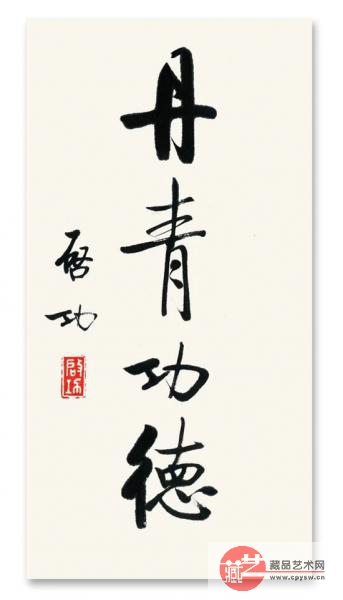 丹青功德
启功
启功
藏艺
藏品艺术网
www.cpysw.cn